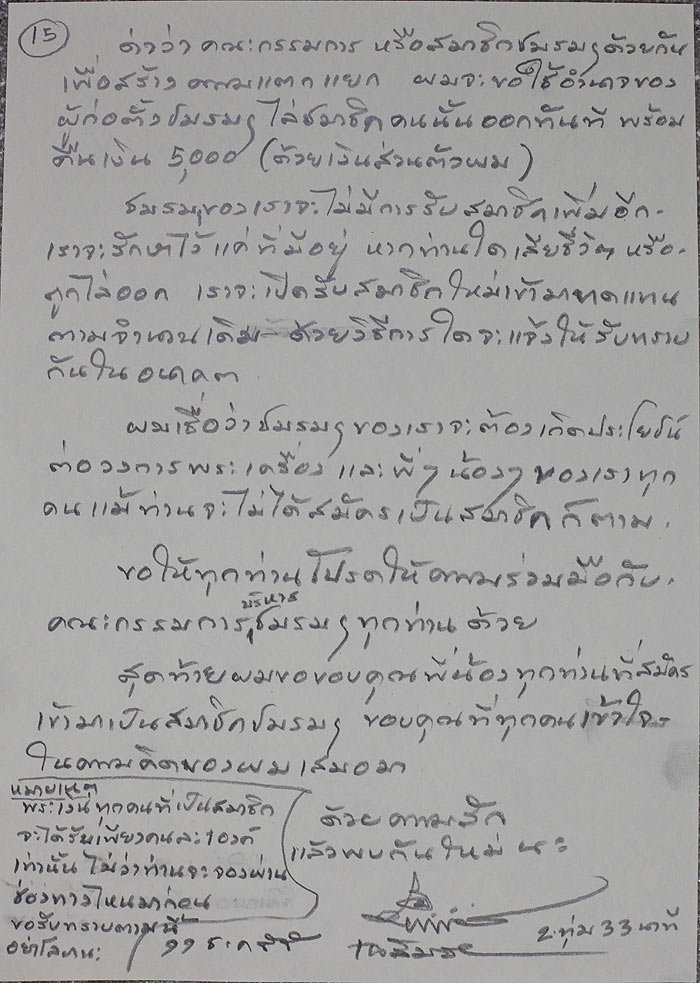 15
ด่าว่า คณะกรรมการ หรือสมาชิกชมรมฯด้วยกัน
เพื่อสร้างความแตกแยก ผมจะขอใช้อำนาจของ
ผู้ก่อตั้งชมรมฯ ไล่สมาชิกคนนั้นออกทันที พร้อม
คืนเงิน 5,000 (ด้วยเงินส่วนตัวผม)
ชมรมฯของเราจะไม่มีการรับสมาชิกเพิ่มอีก
เราจะรักษาไว้ แค่ที่มีอยู่ หากท่านใดเสียชีวิต หรือ
ถูกไล่ออก เราจะเปิดรับสมาชิกใหม่เข้ามาทดแทน
ตามจำนวนเดิม ด้วยวิธีการใดจะแจ้งให้รับทราบ
กันในอนาคต
ผมเชื่อว่าชมรมฯของเราจะต้องเกิดประโยชน์
ต่อวงการพระเครื่อง และพี่ๆน้องๆของเราทุก
คนแม้ท่านจะไม่ได้สมัครเป็นสมาชิกก็ตาม
ขอให้ทุกท่านโปรดให้ความร่วมมือกับ
คณะกรรมการบริหารชมรมฯทุกท่านด้วย
สุดท้ายผมขอขอบคุณพี่น้องทุกท่านที่สมัคร
เข้ามาเป็นสมาชิกชมรมฯ ขอบคุณที่ทุกคนเข้าใจ
ในความคิดของผมเสมอมา
ด้วยความรัก
แล้วพบกันใหม่นะ
2 ทุ่ม 33 นาที
หมายเหตุ
ทุกคนที่เป็นสมาชิก
จะได้รับเพียงคนละ 1 องค์
เท่านั้น ไม่ว่าท่านจะจองผ่าน
ช่องทางไหนมาก่อน
ขอรับทราบตามนี้